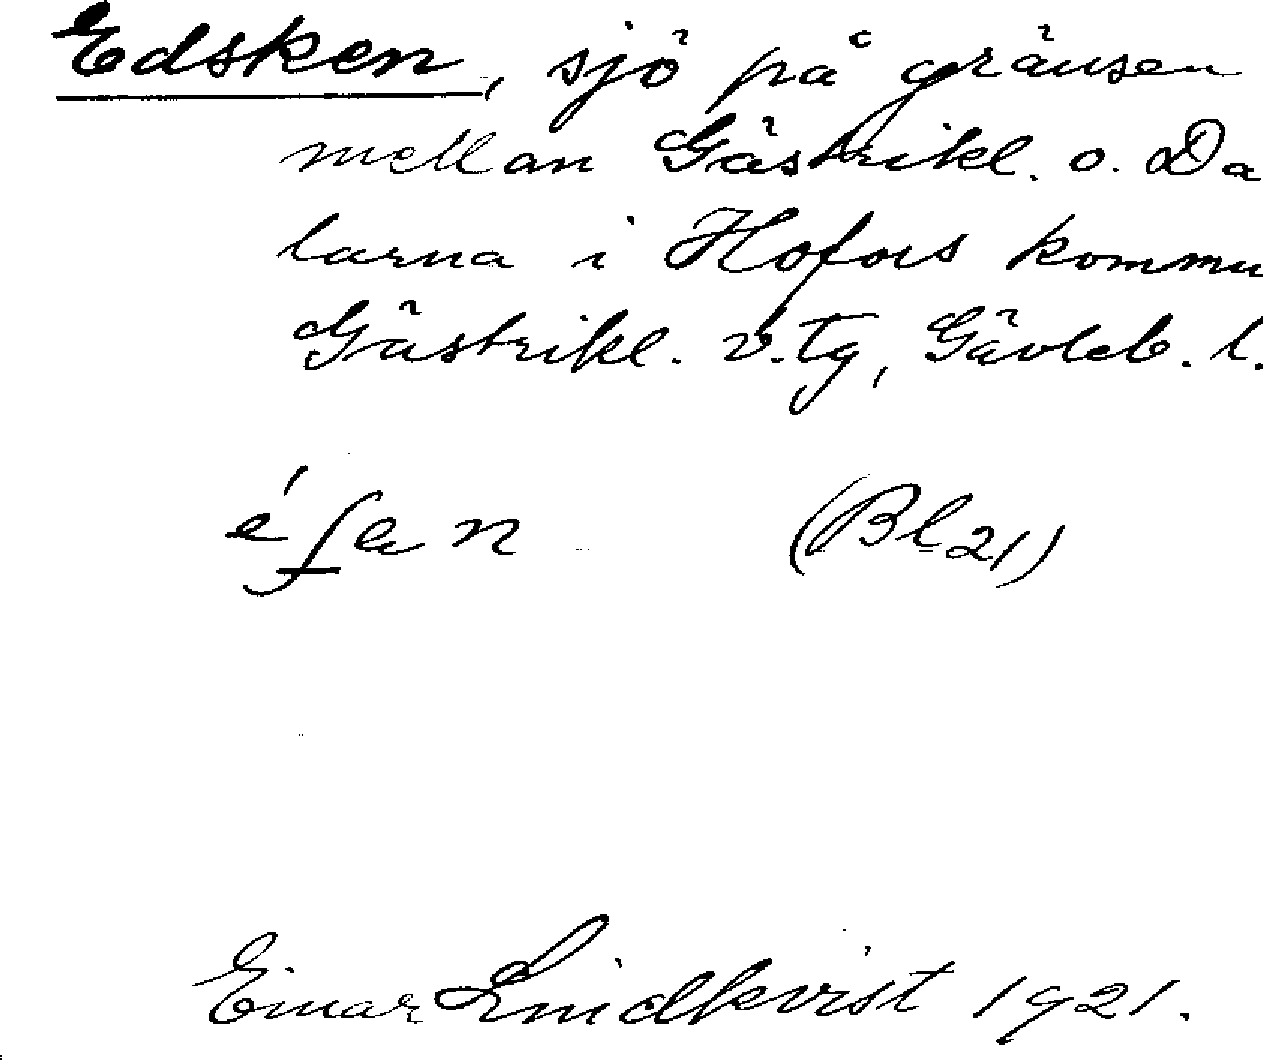 Edsken, sjö på gränsen
mellan Gästrikl. o. Da
larna i Hofors kommu
Gästrikl. v. tg, Gävleb. l.
(Bl 21)
Einar Lindkvist 1921.